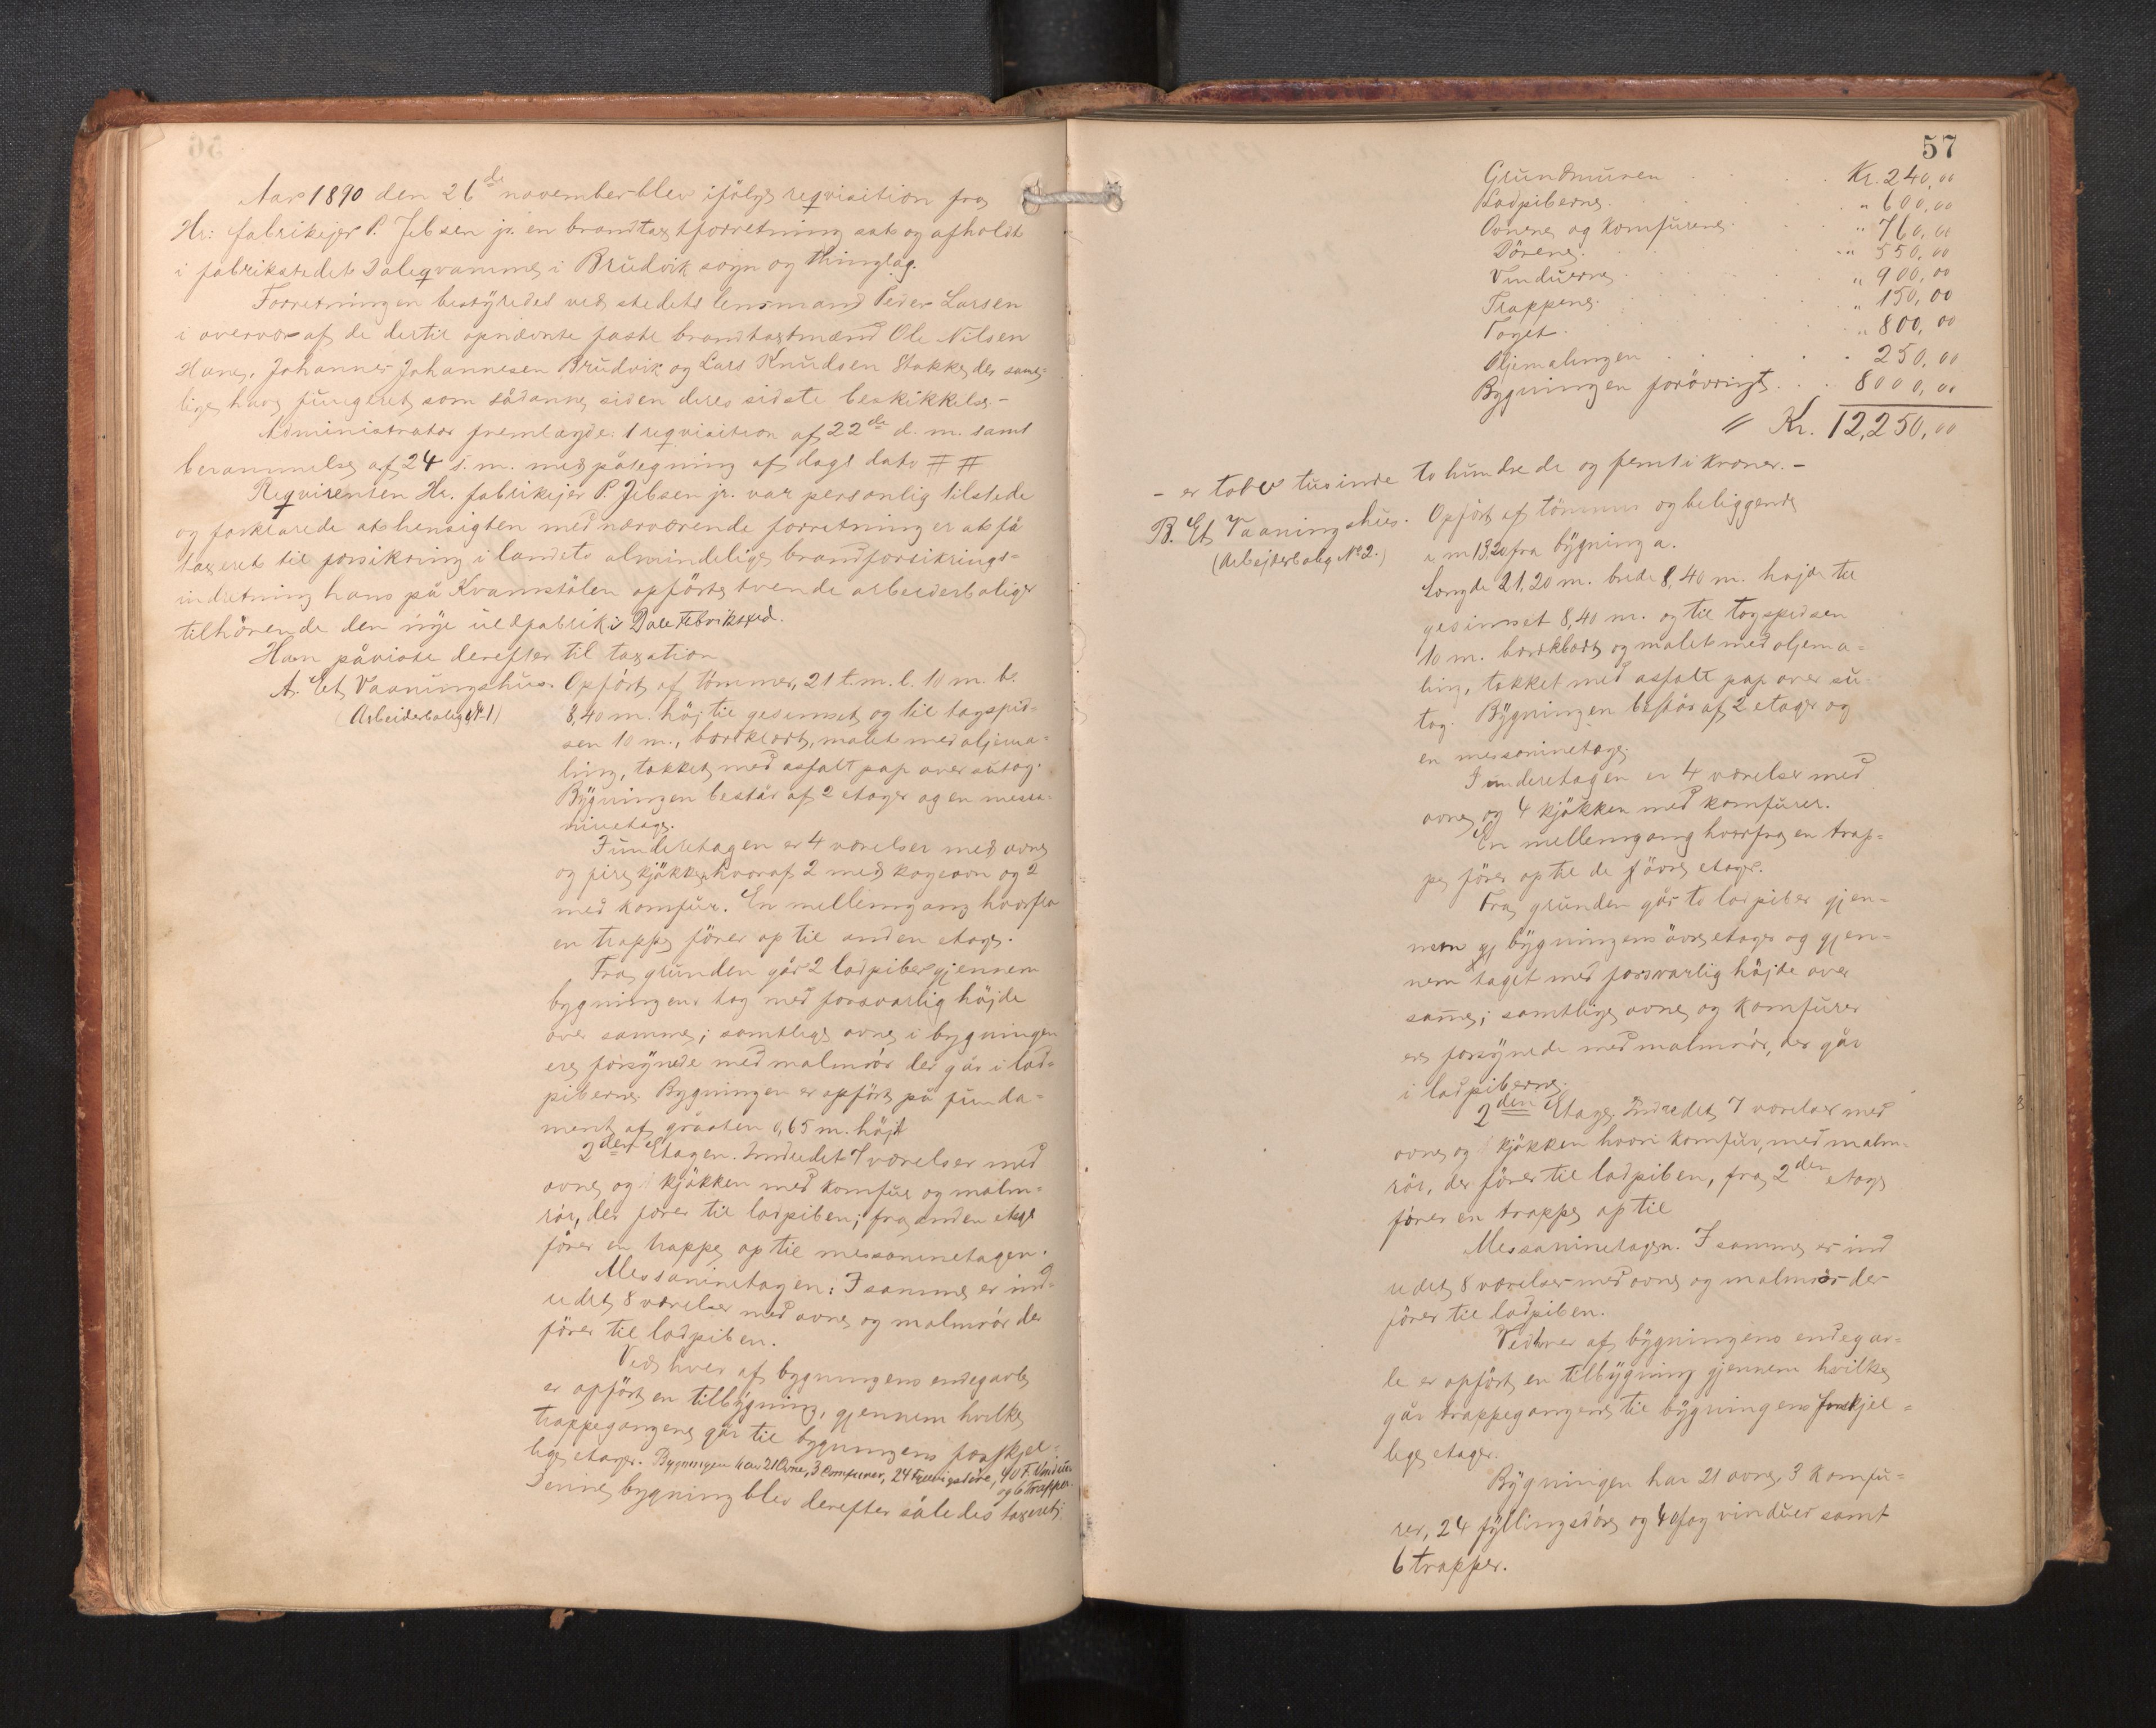 Aar 1890 den 26de november blev ifölge reqvisition fra
Hr. fabrikejer P. Jebsen jr. en brandtaxtforretning sat og afholdt
i fabrikstedet Daleqvamme i Brudvik sogn og thinglag.
Forretningen bestyredes ved stedets lensmand Peder Larsen
i overvær af de dertil opnævnte faste brandtaxtmænd Ole Nilsen
Hane, Johannes Johannesen Brudvik og Lars Knudsen Stokke, der samt-
lige have fungeret som sådanne siden deres sidste beskikkelse. -
Administrator fremlagde: 1 reqvisition af 22de d. m. samt
berammelse af 24 s. m. med påtegning af dags dato # #
Reqvirenten Hr. fabrikejer P. Jebsen jr. var personlig tilstede
og forklarede at hensigten med nærværende forretning er at få
taxeret til forsikring i landets almindelige brandforsikrings-
indretning hans på Kvamstölen opförte tvende arbeiderbolige
tilhörende den nye uldfabrik i Dale Fabriksted.
Han påviste derefter til taxation
A. Et Vaaningshus. Opfört af tömmer, 21 t. m. l. 10 m. b.
(Arbeiderbolig № 1) 8,40 m. höj til gesimset og til tagspid-
sen 10 m., bordklædt, malet med oljema-
ling, tækket med asfalt pap over sutag.
Bygningen består af 2 etager og en messa-
ninetage.
I underetagen er 4 værelser med ovne
og fire kjökken hvoraf 2 med kogeovn og 2
med komfur. En mellemgang hvorfra
en trappe förer op til anden etage.
Fra grunden går 2 ladpiber gjennem
bygningens tag med forsvarlig höjde
over samme; samtlige ovne i bygningen
ere forsynede med malmrör der går i lad-
piberne. Bygningen er opfört på funda-
ment af gråsten 0,65 m. höjt
2den Etagen. Indredet 7 værelser med
ovne og 1 kjökken med komfur og malm-
rör, der förer til ladpiben; fra anden etage
förer en trappe op til messaninetagen.
Messaninetagen: I samme er ind-
redet 8 værelser med ovne og malmrör der
förer til ladpiben.
Ved hver af bygningens endegavle
er opfört en tilbygning, gjennem hvilke
trappegangene går til bygningens forskjel-
lige etager. Bygningen har 21 Ovne, 3 Comfurer, 24 Fyllingsdöre, 40 F. Vinduer
og 6 Trapper.
Denne bygning blev derefter således taxeret:
57
Grundmuren . . . Kr. 240,00
Ladpiberne. . . " 600,00
Ovnene og Komfurene. . . " 760,00
Dörene. . . " 550,00
Vinduerne . . . " 900,00
Trappene. . . " 150,00
Taget. . . " 800,00
Oljemalingen . . . 250,00
Bygningen forövrigt. . . 8000,00
// Kr. 12,250,00
- er tolv tusinde to hundrede og femti kroner. -
B. Et Vaaningshus. Opfört af tömmer og beliggende
(Arbejderbolig № 2.) i m 13,20 fra bygning a.
Længde 21,20 m. brede 8,40 m. højde til
gesimset 8,40 m. og til tagspidsen
10 m. bordklædt og malet med oljema-
ling, tækket med asfalt pap over su-
tag. Bygningen består af 2 etager og
en messaninetage.
I underetagen er 4 værelser med
ovne og 4 kjökken med komfurer.
En mellemgang hvorfra en trap-
pe förer op til de övre etager.
Fra grunden går to ladpiber gjen-
nem gj bygningens övre etager og gjen-
nem taget med forsvarlig höjde over
samme; samtlige ovne og komfurer
ere forsynede med malmrör, der går
i ladpiberne.
2den Etage. Indredet 7 værelser med
ovne og 1 kjökken hvori komfur, med malm-
rör, der förer til ladpiben, fra 2den etage
förer en trappe op til
Messaninetagen. I samme er ind
redet 8 værelser med ovne og malmrör der
förer til ladpiben.
Ved hver af bygningens endegav-
le er opfört en tilbygning gjennem hvilke
går trappegangene til bygningens forskjel-
lige etager.
Bygningen har 21 ovne, 3 komfu-
rer, 24 fyllingsdöre og 40 fag vinduer samt
6 trapper.